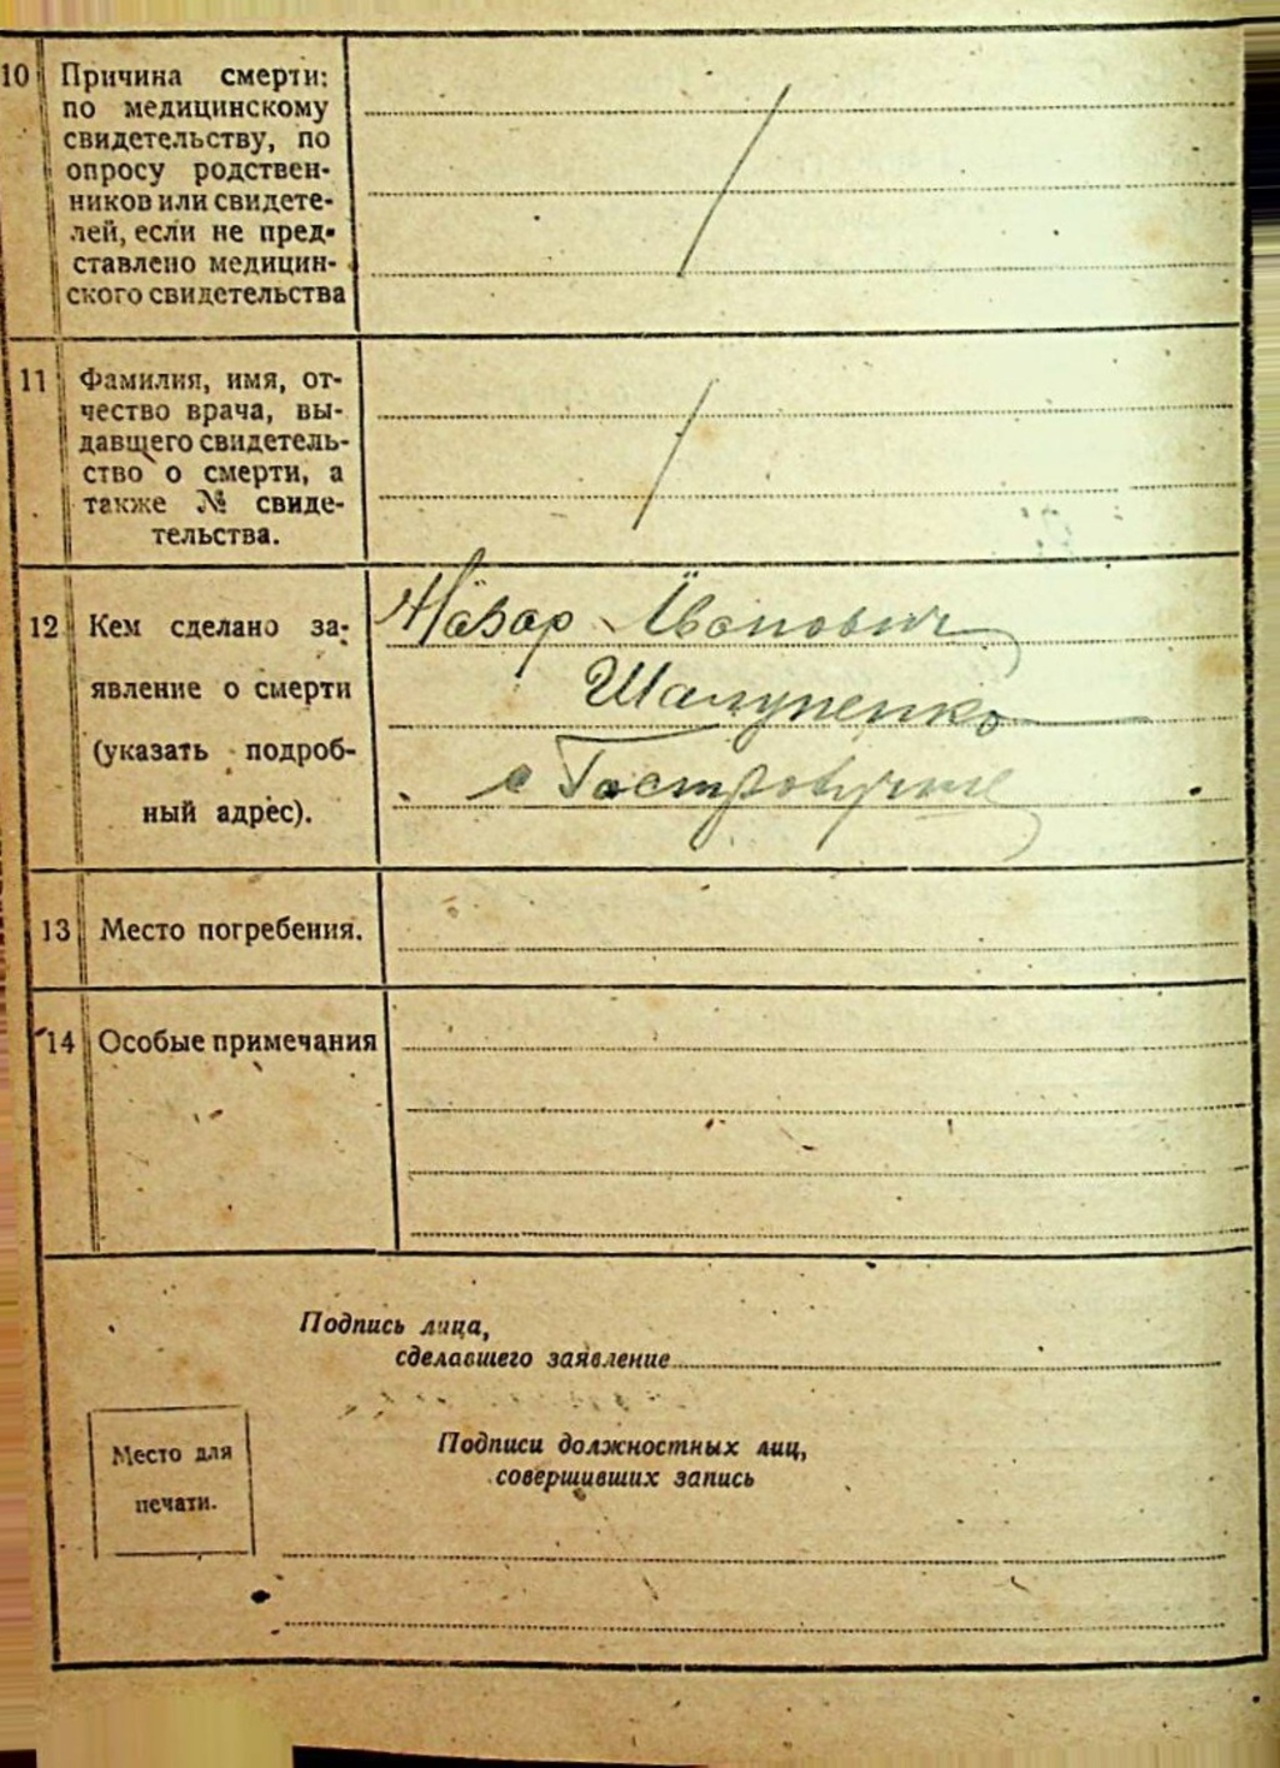 10 Причина смерти:
по медицинскому
свидетельству, по
опросу родствен-
ников или свидете-
лей, если не пред-
ставлено медицин-
ского свидетельства
11 Фамилия, имя, от-
чество врача, вы-
давщего свидетель-
ство о смерти, а
также № свиде-
тельства.
12 Кем сделано за-
явление о смерти
(указать подроб-
ный адрес).
Назар Іванович
Шалупенко
с
13 Место погребения.
14 Особые примечания
Подпись лица,
сделавшего заявление
Место для
печати.
Подписи должностных лиц,
совершивших запись